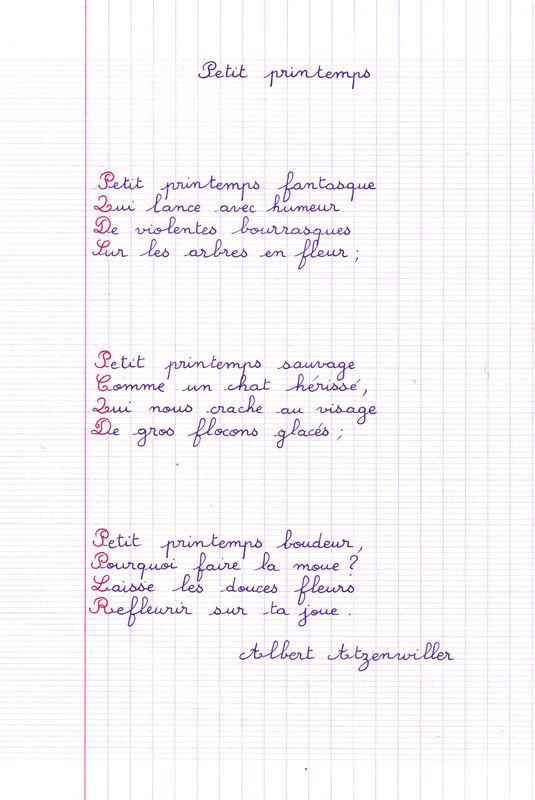 Petit printemps
Petit printemps fantasque
Qui lance avec humeur
De violentes bourrasques
Sur les arbres en fleur ;
Petit printemps sauvage
Comme un chat hérissé,
Qui nous crache au visage
De gros flocons glacés ;
Petit printemps boudeur,
Pourquoi faire la moue ?
Laisse les douces fleurs
Refleurir sur ta joue .
Albert Atzenwiller